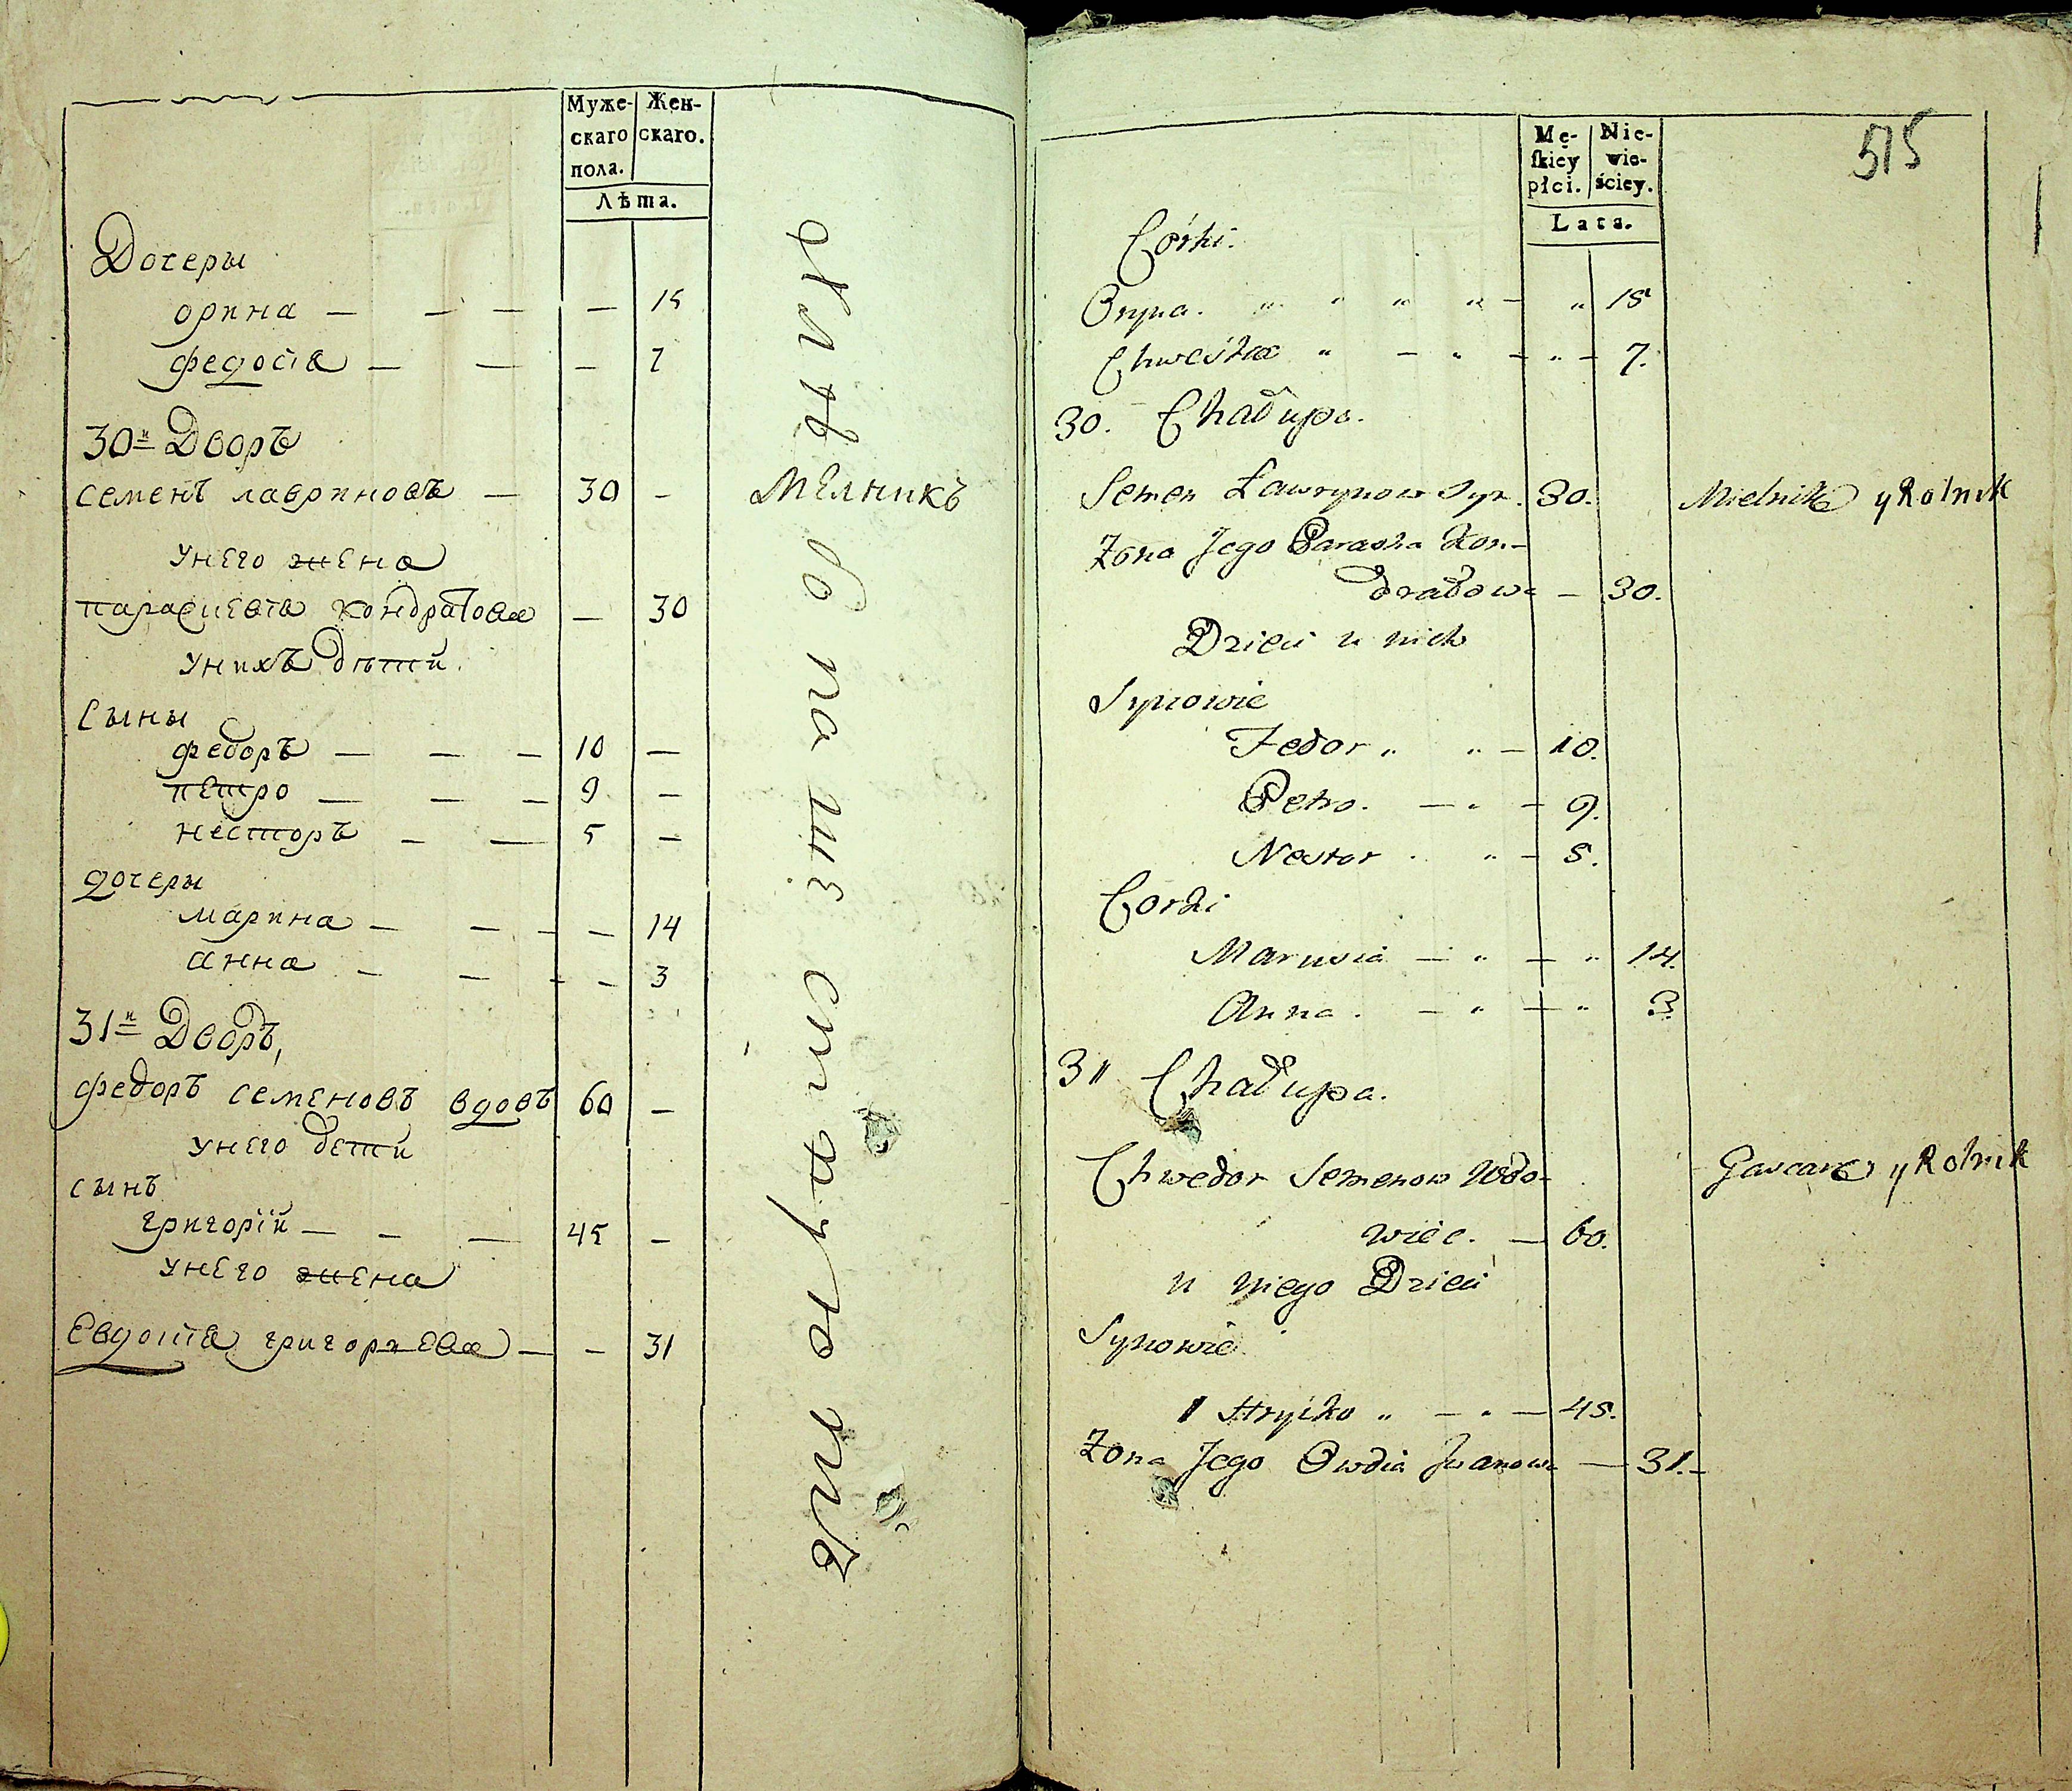 Муже-скаго пола. Жен-скаго.
Лѣта.
Дочеры
орина — — — — 15
федосія — — — 7
30й Дворъ
семенъ лавриновъ — 30 — Мелникъ
унего жена
парасцевія кондратова — 30
унихъ дѣти.
Сыны
федоръ — — — 10 —
петро — — — 9 —
несторъ — — 5 —
дочеры
марина — — — — 14
анна — — — — 3
31й Дворъ,
федоръ семеновъ вдовъ 60 —
унего дети
сынъ
григорій — — — 45 —
унего жена
Евдокія григорьева — — 31
515
Mę-skiey płci. Nie-wie-ściey.
Lata.
Córki.
Oryna. " " " " — " 15
Chweśka " — " — " — 7.
30. Chałupa.
Semen Ławrynow Syn. 30. Mielnik y Rolnik
Żona Jego Paraska Kon-
dratowa — 30.
Dzieci u nich
Synowie
Fedor " " — 10.
Petro. — " — 9.
Nestor " — 5.
Corki
Marusia — " — " 14.
Anna. — " — " 3.
31 Chałupa.
Chwedor Semenow Wdo-
wiec. — 60.
Garcarz y Rolnik
u niego Dzieci
Synowie
1 Hryćko " — " — 45.
Żona Jego Owdia Iwanowa — 31. —